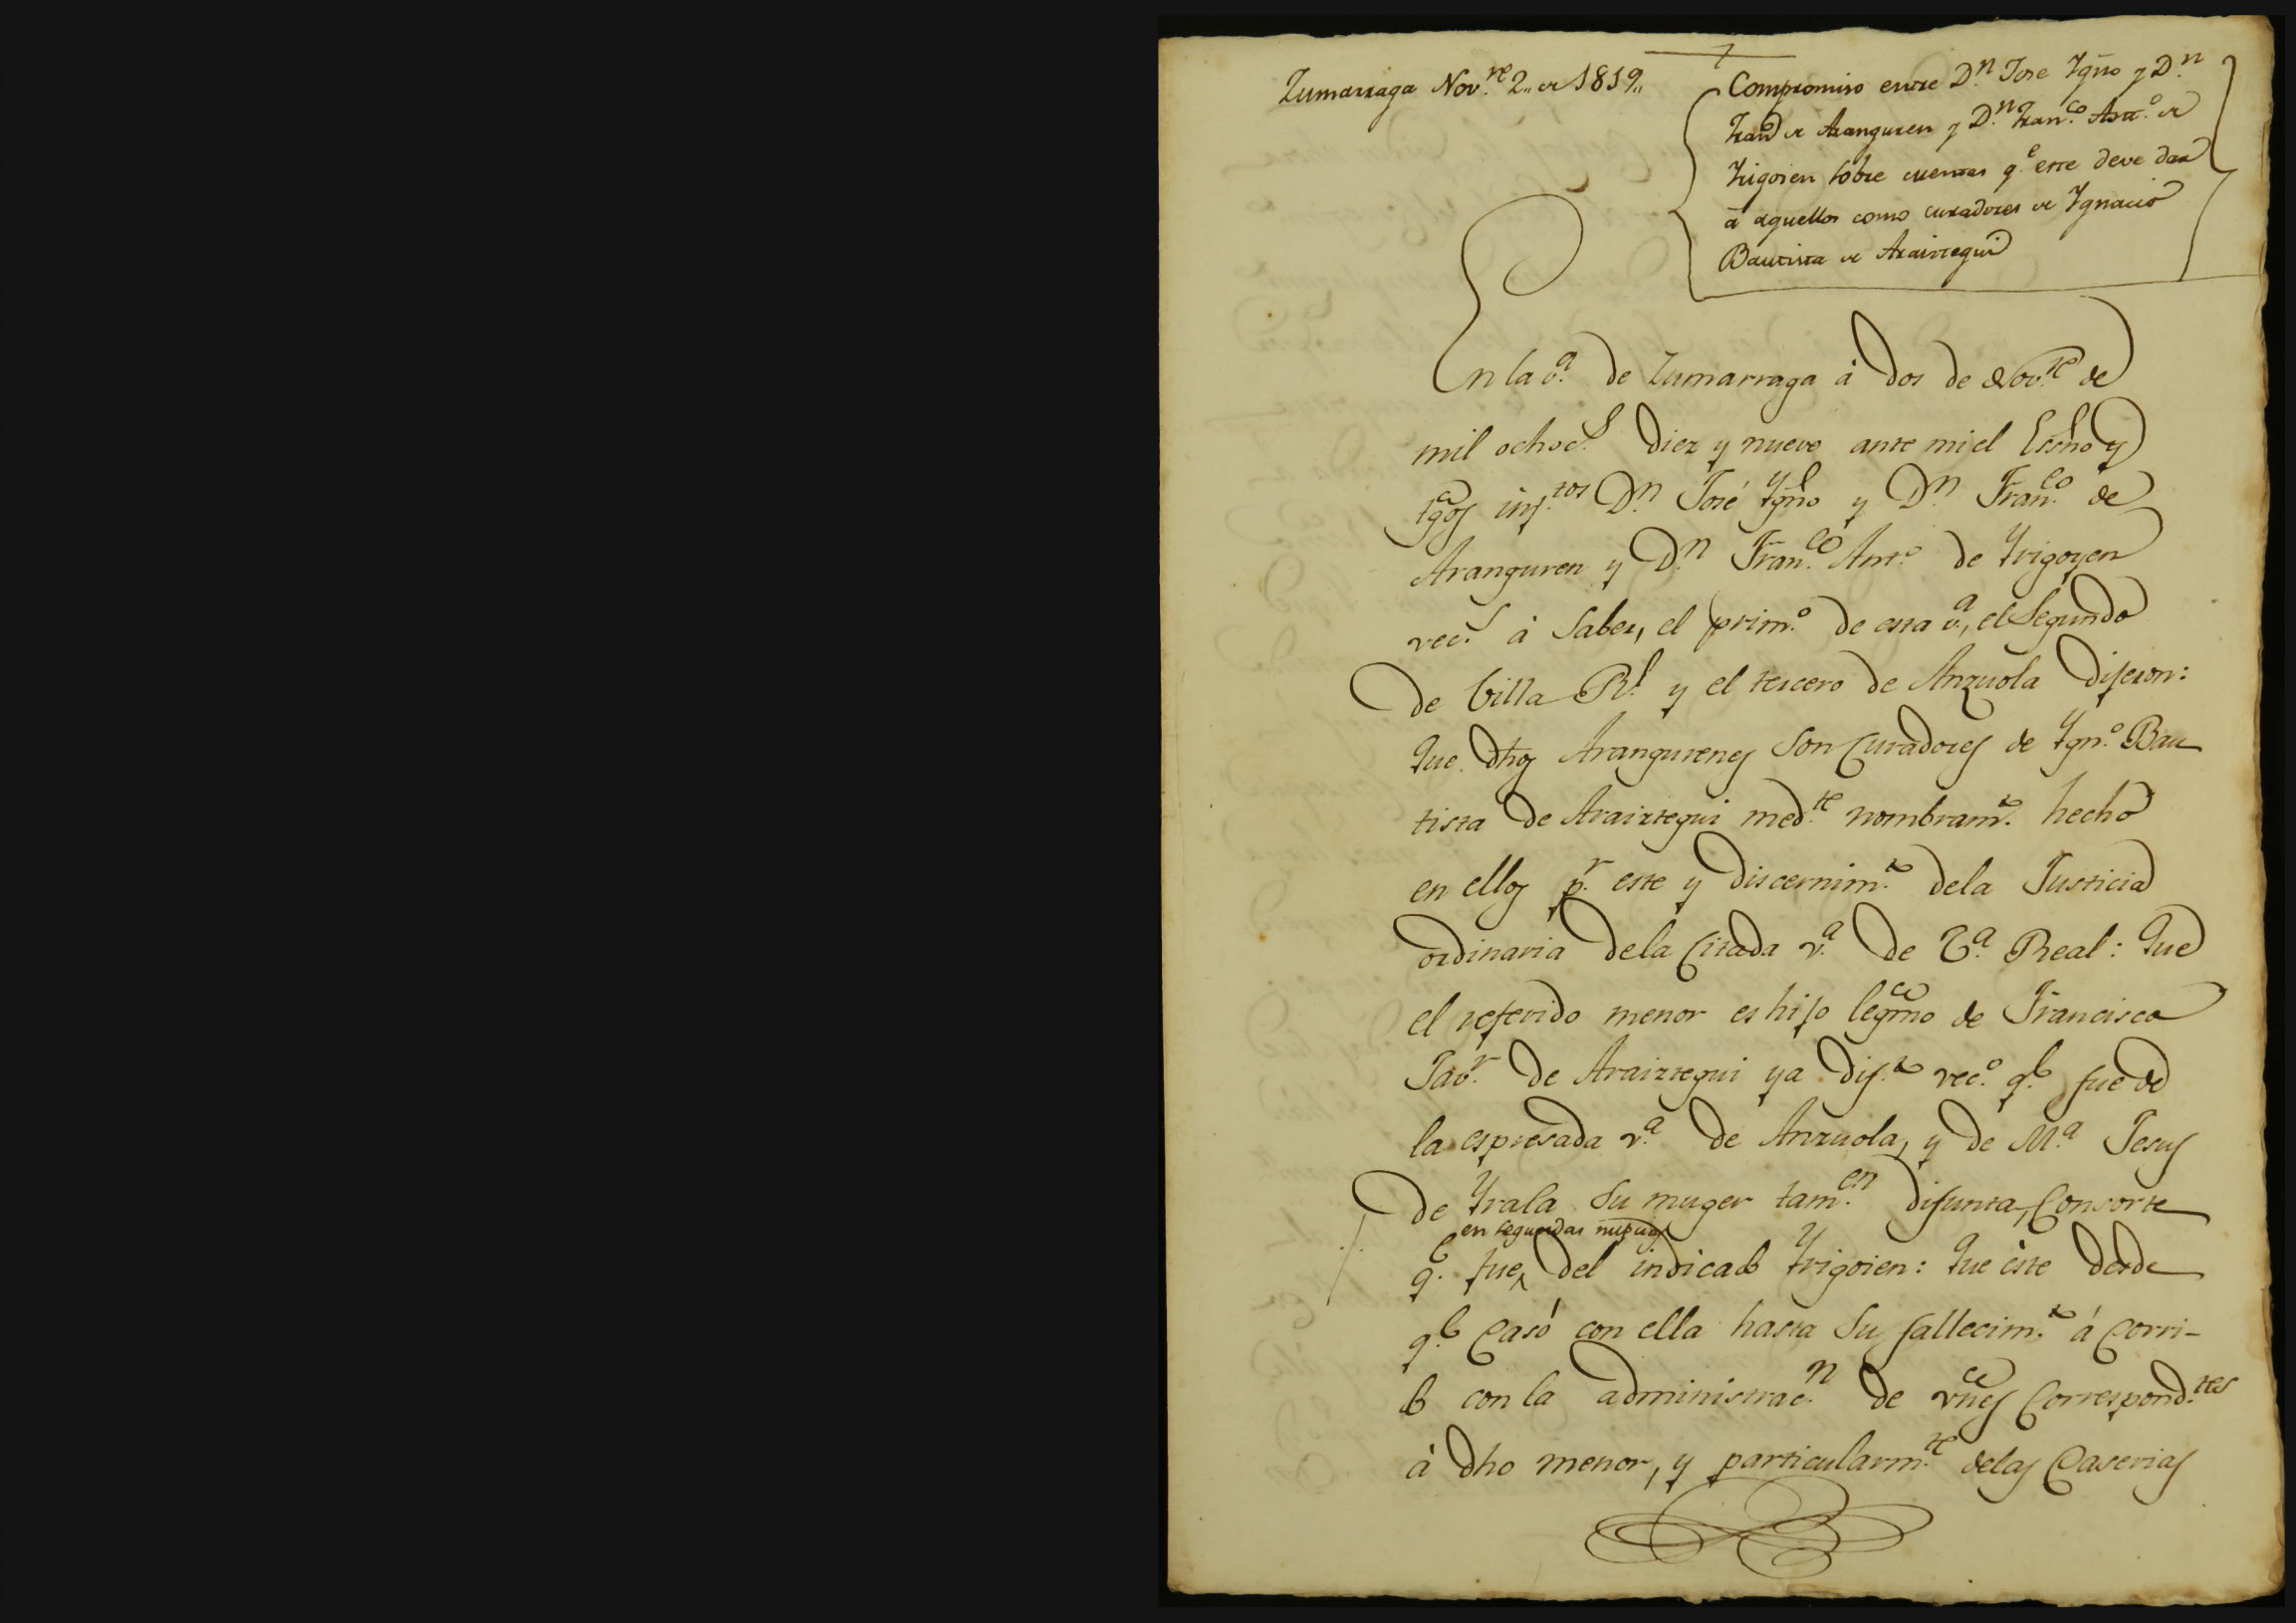 Zumarraga Nov.re 2,, de 1819,,
Compromiso entre D.n Jose Ygno y D.n
Fran.co de Aranguren y D.n Fran.co Ant.o de
Yrigoien sobre cuentas q.e este deve dar
á aquellos como curadores de Ygnacio
Bautista de Araiztegui
En la v.a de Zumarraga á dos de Nov.re de
mil ochoc.s diez y nueve ante mi el Essno y
tgos inf.tos D.n José Ygno y D.n Fran.co de
Aranguren y D.n Fran.co Ant.o de Yrigoyen
vec.s á saber, el prim.o de esta v.a, el segundo
de Villa R.l y el tercero de Anzuola dijeron:
Que dhos Arangurenes son curadores de Ygn.o Bau
tista de Araiztegui med.te nombram.to hecho
en ellos p.r este y discernim.to dela Justicia
ordinaria dela citada v.a de V.a Real: Que
el referido menor es hijo legmo de Francisco
Jav.r de Araiztegui ya dif.to vec.o q.e fue de
la espresada v.a de Anzuola, y de M.a Jesus
de Yrala su muger tam.en difunta, consorte
en segundas nupcias
q.e fue del indicado Yrigoien: Que este desde
q.e casó con ella hasta su fallecim.to á corri-
do con la administrac.n de vnes correspond.tes
á dho menor, y particularm.te delas caserias